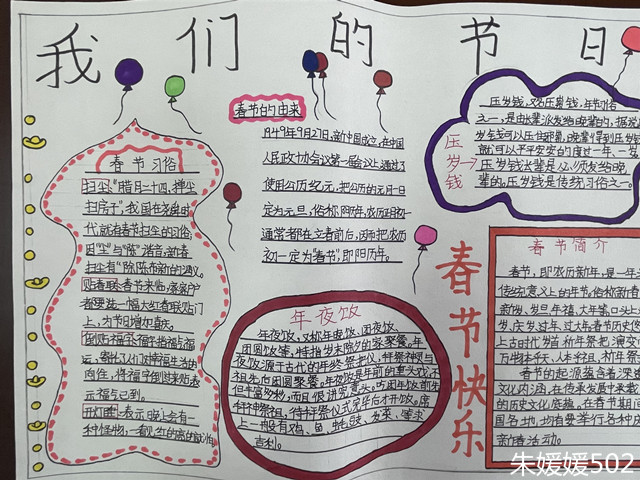 我们的节日
春节习俗
扫尘:"腊月二十四,掸尘
扫房子",我国在尧舜时
代就有春节扫尘的习俗。
因"尘"与"陈"谐音,新春
扫尘有"除陈布新"的涵义。
贴春联:春节来临,家家户
都要选一幅大红春联贴门
上,为节日增加喜庆。
倒贴福字:福字指福气福
运,寄托了人们对幸福生活的
向往,将福字倒过来贴表
示福气已到。
春节的由来
1949年9月27日,新中国成立,在中国
人民政协会议第一届会议上,通过了
使用公历纪元,把公历的元月一日
定为元旦,俗称阳历年,农历正月初一
通常都在立春前后,因而把农历
初一定为"春节",即阴历年。
压岁钱
压岁钱,又名压祟钱,年节习俗
之一,是由长辈派发给晚辈的,据说
岁钱可以压住邪祟,晚辈得到压岁钱
就可以平平安安的度过一年,一岁
压岁钱长辈是必须发给晚
辈的。压岁钱是传统习俗之一。
年夜饭
年夜饭,又称年晚饭、团夜饭、
团圆饭等,特指岁末除夕的家聚餐。年
夜饭源于古代的年终祭祀仪,拜祭神灵与
祖先后团圆聚餐。年夜饭是年前的重头戏,不
但丰富多彩,而且很讲究意头。吃团年饭前
上一般有鸡、鱼、蚝豉、发菜、
吉利。
春节快乐
春节简介
春节,即农历新年,是一年
传统意义上的年节。俗称新春
岁、庆岁、过年、过大年。春节历史
上古时代岁首祈年祭祀演变
万物本乎天、人本乎祖,祈年祭
春节的起源蕴含着深邃
文化内涵,在传承发展中承载
的历史文化底蕴,在春节期间
国各地均有要举行各种庆
朱媛媛502